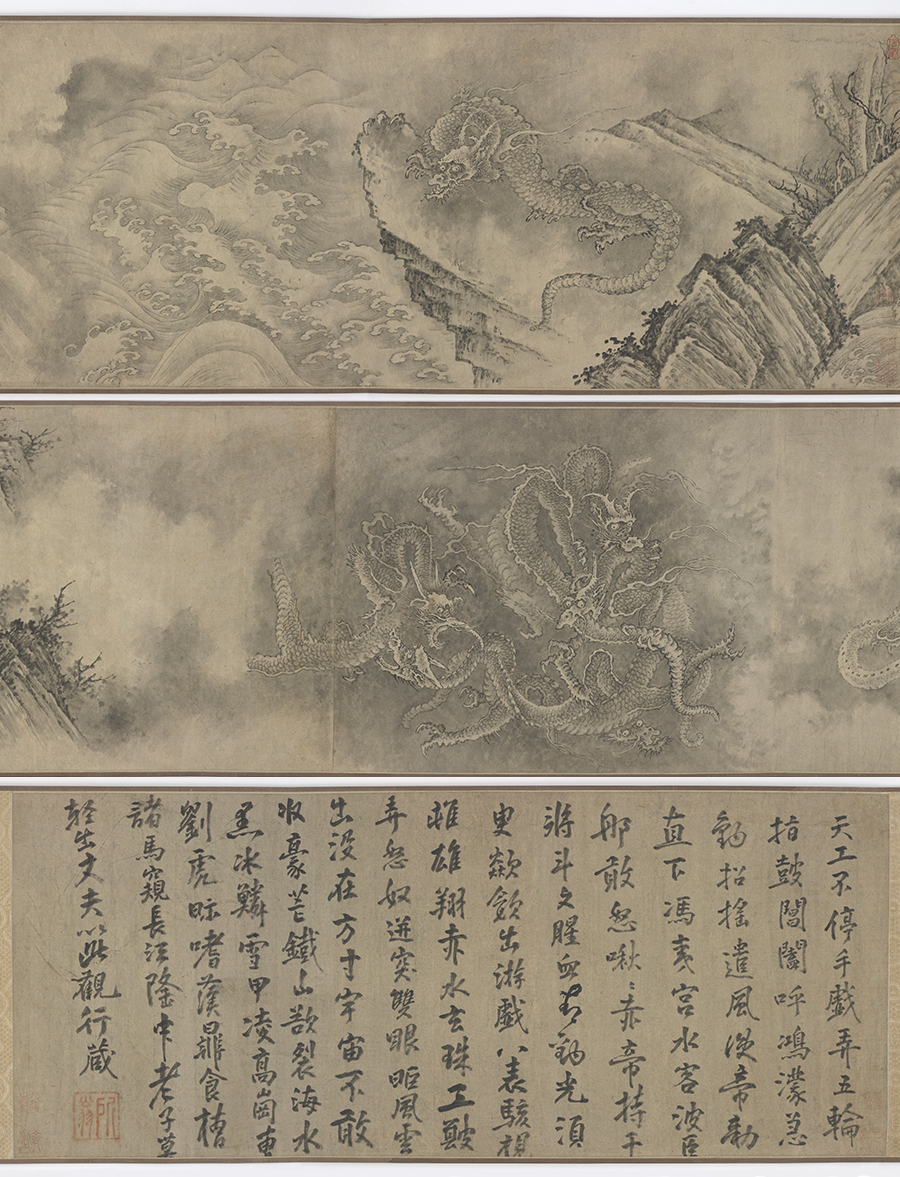 天工不停手戲弄五輪
指鼓闔闢呼鴻濛忽
招搖遣風使帝勅
直下馮夷宮水客波臣
那敢怒啾啾赤帝持干
將斗文腥血光須
臾歘出游戲八表駭視
雄翔赤水玄珠工
弄怒奴迸突雙眼眶風雲
出没在方寸宇宙不敢
收豪芒鐵山欲裂海水
黑冰鱗雪甲凌高崗東
劉虎眎嗜漢鼎食槽
諸馬窺長江隆中老子莫
輕出丈夫以此觀行藏
所翁